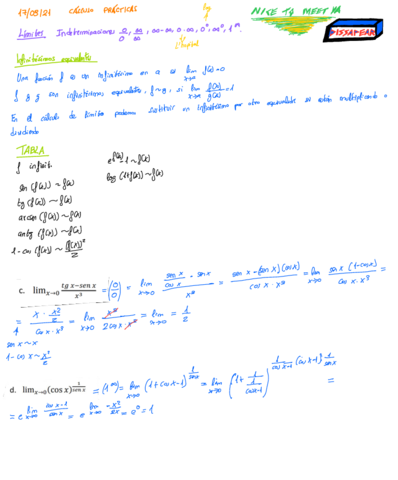 17/09/21 CÁLCULO PRÁCTICAS log ↑ NIVE TQ MEET MA
Límites Indeterminaciones 0/0, ∞/∞, ∞-∞, 0·∞, 0⁰, ∞⁰, 1^∞.
L'Hôpital
DISSAPEAR
Infinitésimos equivalentes
Una función f es un infinitésimo en a si lim x→a f(x)=0
f y g son infinitésimos equivalentes, f~g, si lim x→a f(x)/g(x) = 1
En el cálculo de límites podemos sustituir un infinitésimo por otro equivalente si están multiplicando o
dividiendo
TABLA
f infinit. e^f(x) - 1 ~ f(x)
log (1+f(x)) ~ f(x)
sen (f(x)) ~ f(x)
tg (f(x)) ~ f(x)
arcsen (f(x)) ~ f(x)
arctg (f(x)) ~ f(x)
1 - cos (f(x)) ~ (f(x))²/2
c. lim x→0 (tg x - sen x)/x³ = (0/0) = lim x→0 (sen x/cos x - sen x)/x³ = (sen x - (sen x)(cos x))/(cos x · x³) = lim x→0 sen x (1 - cos x)/(cos x · x³) =
= (x · x²/2)/(cos x · x³) = lim x→0 x³/(2 cos x · x³) = lim x→0 = 1/2
sen x ~ x
1 - cos x ~ x²/2
d. lim x→0 (cos x)^(1/sen x) = (1^∞) = lim x→0 (1 + cos x - 1)^(1/sen x) = lim x→0 (1 + 1/(1/(cos x - 1)))^(1/(cos x - 1) (cos x - 1) 1/sen x) =
= e^(lim x→0 (cos x - 1)/sen x) = e^(lim x→0 -x²/2x) = e⁰ = 1